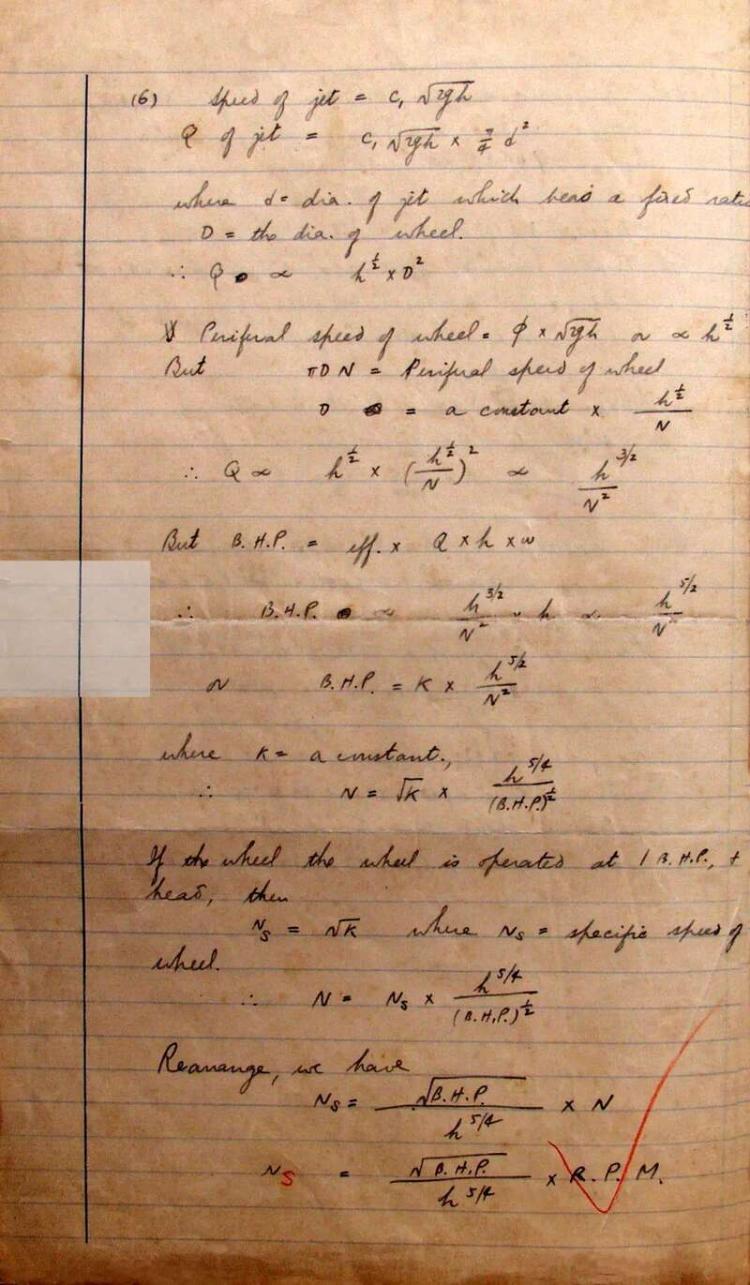 (6) Speed of jet = C₁ √2gh
Q of jet = C₁ √2gh × π/4 d²
where d = dia. of jet which bears a fixed ratio
D = the dia. of wheel.
∴ Q ∝ h^½ × D²
Perifural speed of wheel = ϕ × √2gh or ∝ h^½
But πDN = Perifural speed of wheel
D = a constant × h^½/N
∴ Q ∝ h^½ × (h^½/N)² ∝ h^3/2/N²
But B.H.P. = eff. × Q × h × w
∴ B.H.P. ∝ h^3/2/N² × h ∝ h^5/2/N²
or B.H.P. = K × h^5/2/N²
where K = a constant.,
∴ N = √K × h^5/4/(B.H.P.)^½
If the wheel the wheel is operated at 1 B.H.P., +
head, then
N_S = √K where N_S = specific speed of
wheel.
∴ N = N_S × h^5/4/(B.H.P.)^½
Rearange, we have
N_S = √B.H.P./h^5/4 × N
N_S = √B.H.P./h^5/4 × R.P.M.